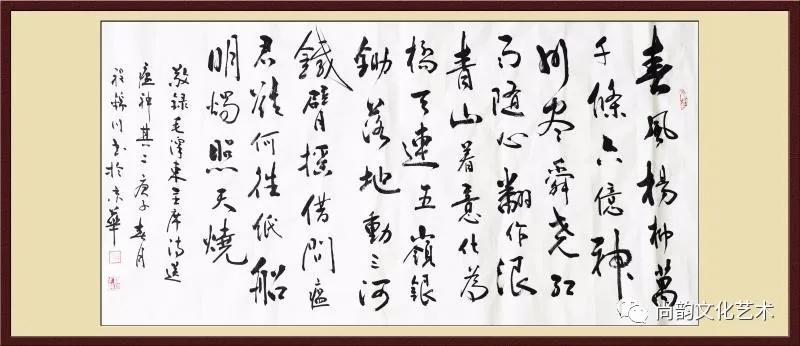 春風楊柳萬
千條六億神
州尽舜尧红
雨随心翻作浪
青山着意化為
橋天連五嶺銀
鋤落地動三河
鐵臂摇借問瘟
君欲何往纸船
明燭照天燒
敬録毛澤東主席詩送
瘟神其二庚子春月
程川书於京華
尚韵文化艺术